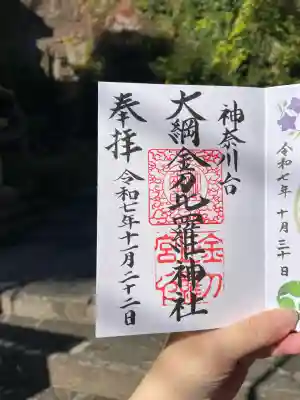 神奈川台
大綱金刀比羅神社
奉拝
令和七年十一月二十二日
令和七年十月三十日